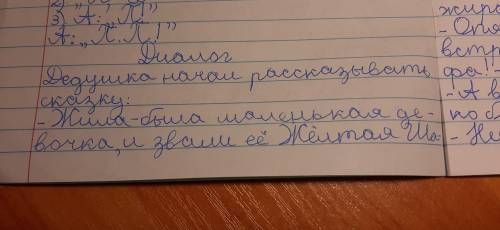 3) А: „П!"
А: „П.П.!"
Диалог
Дедушка начал рассказывать
сказку:
- Жила-была маленькая де-
вочка, и звали её Жёлтая Ша-
жира
- Опя
встр
фа!-
- А в
по с
- Не